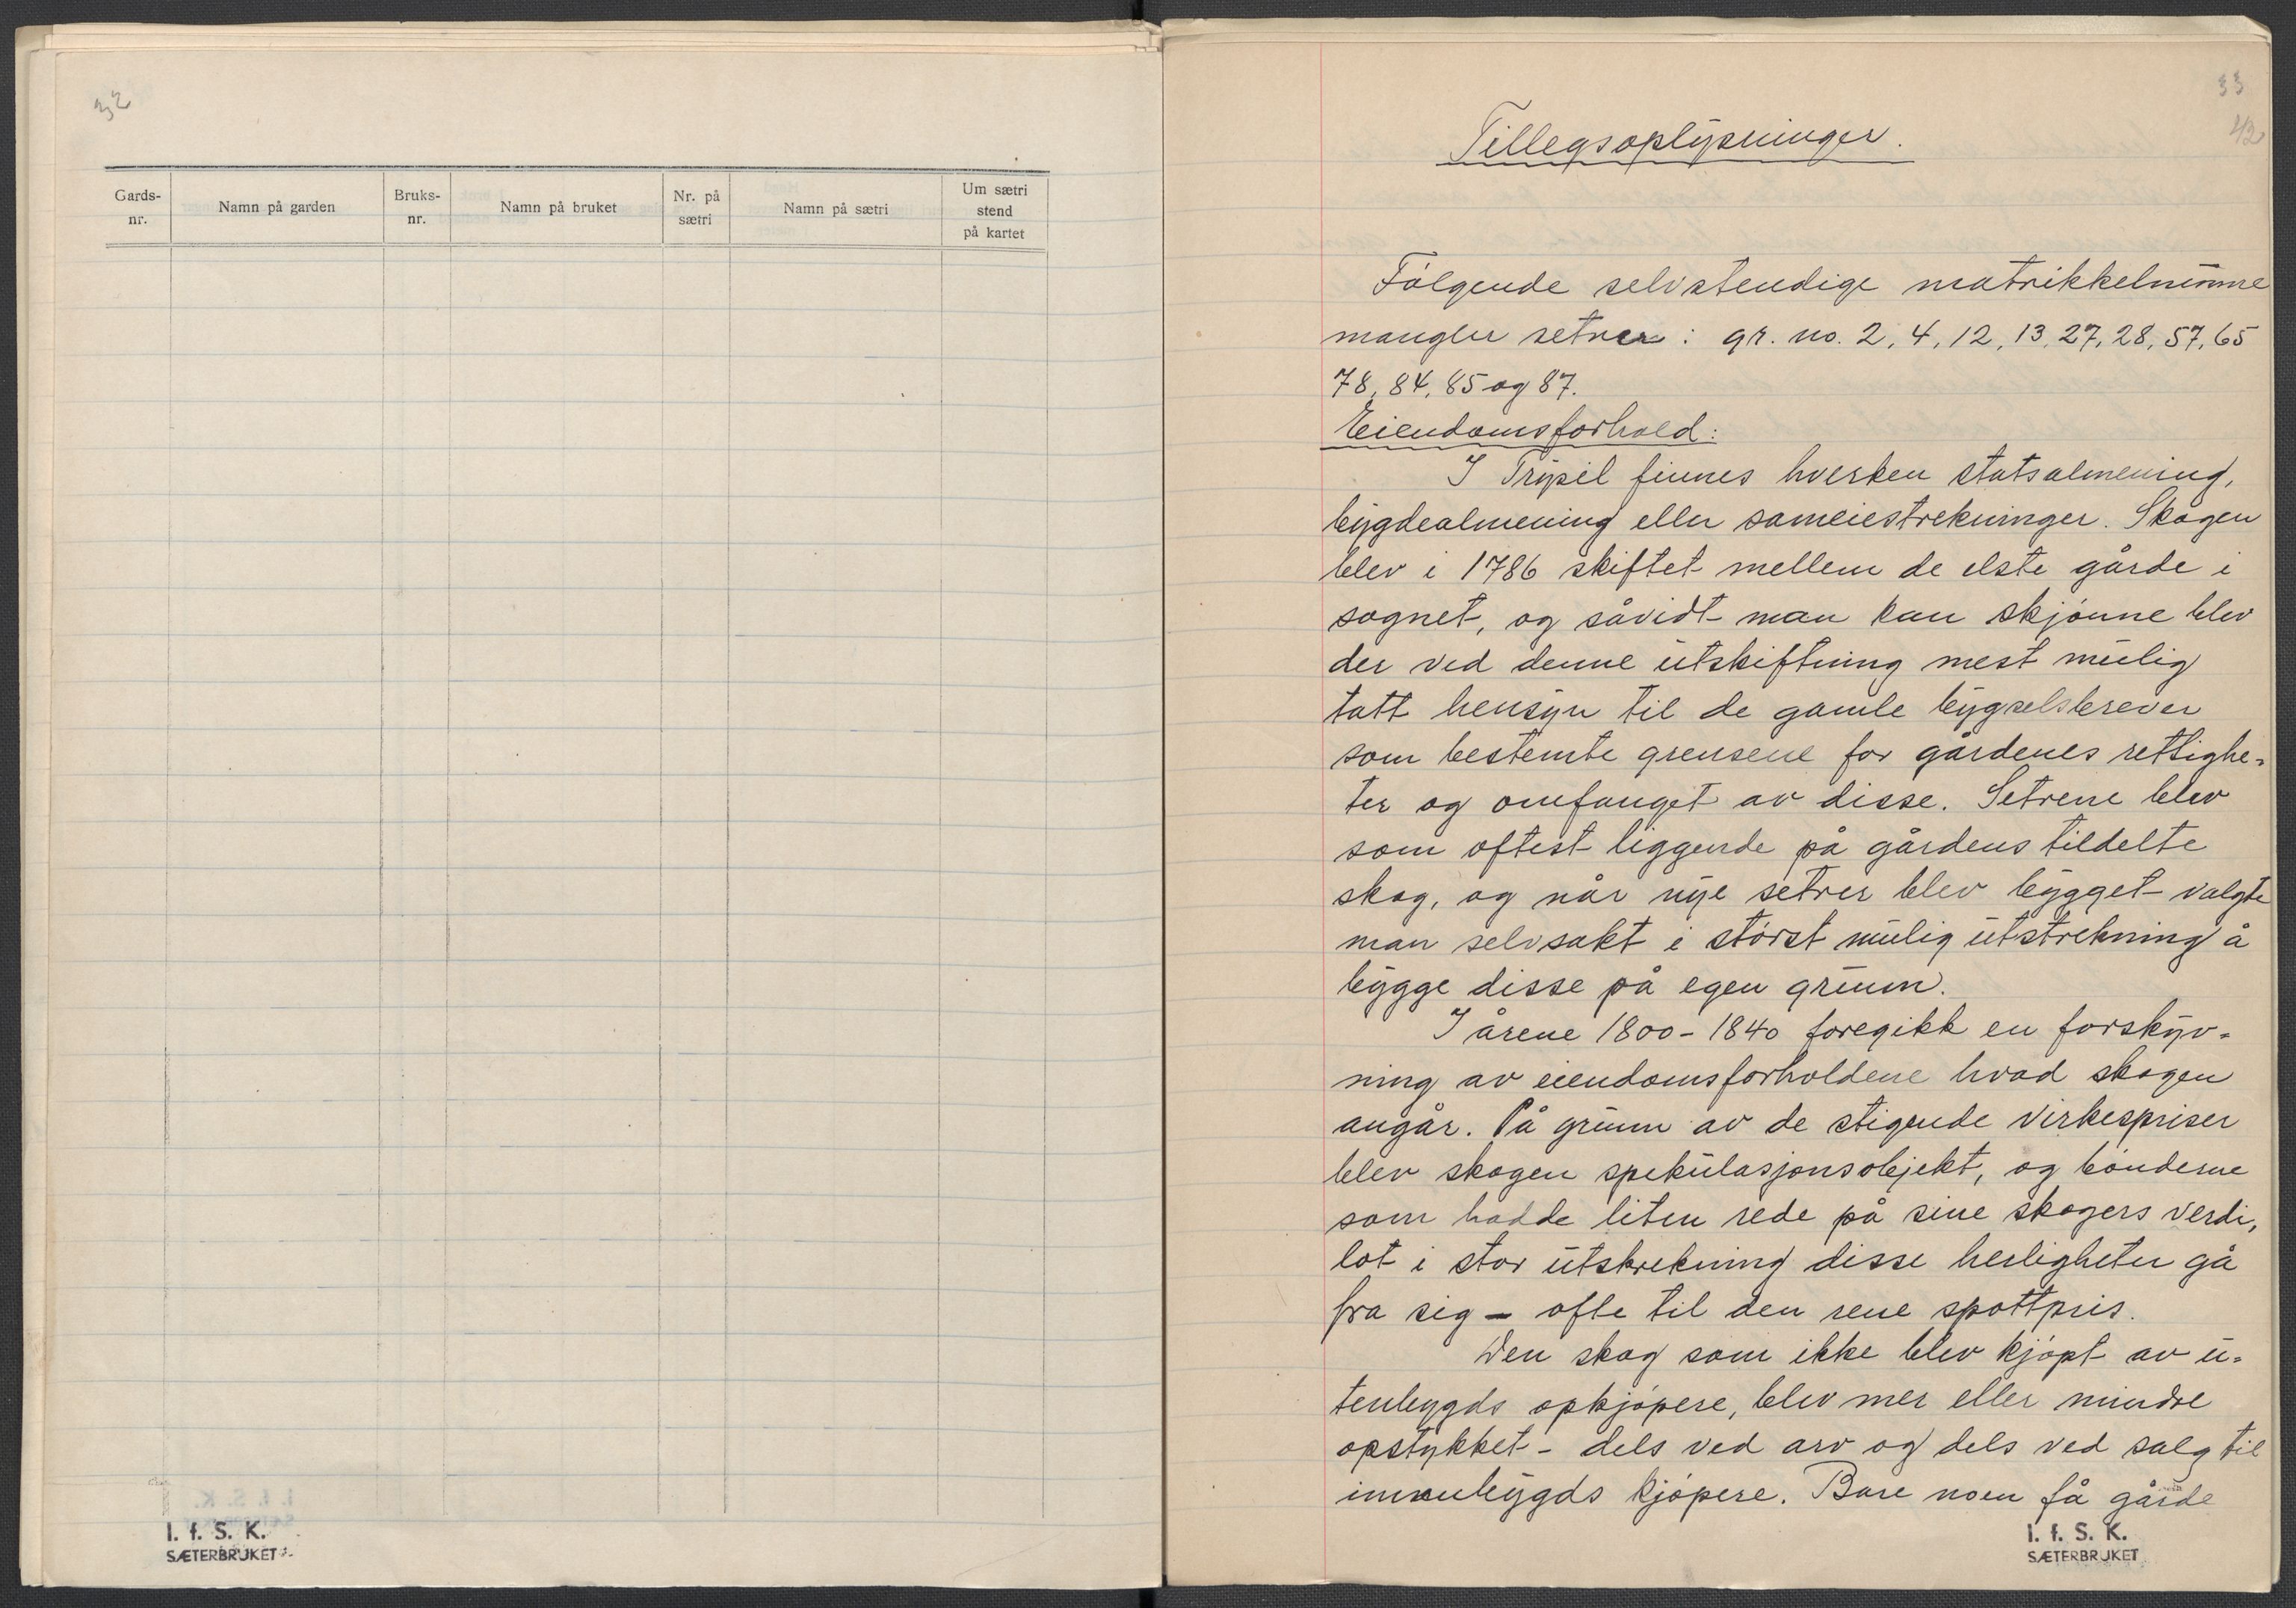 32
Gards-
nr.
Namn på garden
Bruks-
nr.
Namn på bruket
Nr. på
sætri
Namn på sætri
Um sætri
stend
på kartet
I. f. S. K.
SÆTERBRUKET
33
42
Tillegsoplysninger.
Følgende selvstendige matrikkelnumre
mangler setrer: gr. no. 2, 4, 12, 13, 27, 28, 57, 65
78, 84, 85 og 87.
Eiendomsforhold:
I Trysil finnes hverken statsalmening,
bygdealmening eller sameiestrekninger. Skogen
blev i 1786 skiftet mellem de elste gårde i
sognet, og såvidt man kan skjønne blev
der ved denne utskiftning mest mulig
tatt hensyn til de gamle bygselsbrever
som bestemte grensene for gårdenes rettighe-
ter og omfanget av disse. Setrene blev
som oftest liggende på gårdens tildelte
skog, og når nye setrer blev bygget valgte
man selvsakt i størst mulig utstrekning å
bygge disse på egen grunn.
I årene 1800-1840 foregikk en forskyv-
ning av eiendomsforholdene hvad skogen
angår. På grunn av de stigende virkespriser
blev skogen spekulasjonsobjekt, og bønderne
som hadde liten rede på sine skogers verdi,
lot i stor utskrekning disse herligheter gå
fra sig - ofte til den rene spottpris.
Den skog som ikke blev kjøpt av u-
tenbygds opkjøpere, blev mer eller mindre
opstykket - dels ved arv og dels ved salg til
innenbygds kjøpere. Bare noen få gårde
I. f. S. K.
SÆTERBRUKET